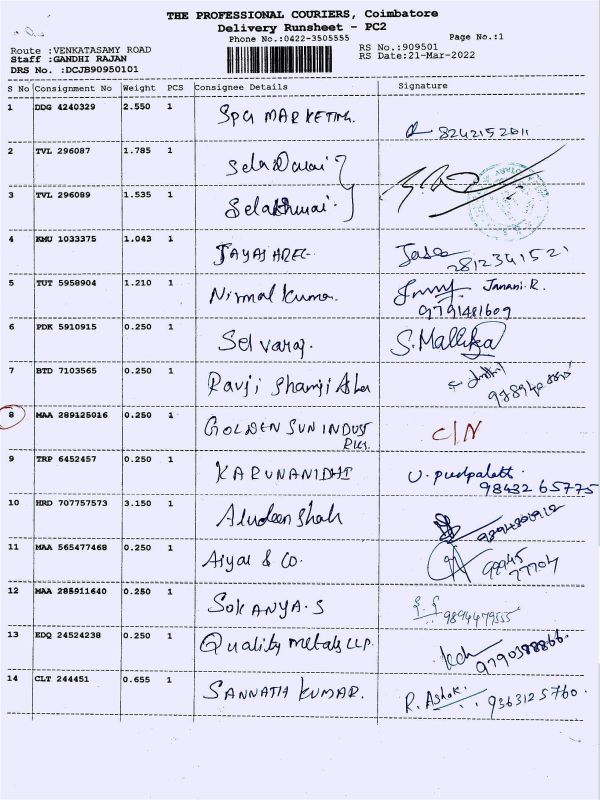 THE PROFESSIONAL COURIERS, Coimbatore
Delivery Runsheet - PC2
Phone No.:0422-3505555
Page No.:1
Route :VENKATASAMY ROAD
Staff :GANDHI RAJAN
DRS No. :DCJB90950101
RS No.:909501
RS Date:21-Mar-2022
S No Consignment No Weight PCS Consignee Details Signature
1 DDG 4240329 2.550 1 SPG MARKETING.
8242152611
2 TVL 296087 1.785 1 Seladurai
3 TVL 296089 1.535 1
4 KMU 1033375 1.043 1 JAYASHREE
2812341521
5 TUT 5958904 1.210 1 Nirmal Kumar. Janani.R.
9791481609
6 PDK 5910915 0.250 1 Selvaraj. S. Mallika
7 BTD 7103565 0.250 1 Ravji Shamji
8 MAA 289125016 0.250 1 GOLDEN SUN INDUST C/N
RIES.
9 TRP 6452457 0.250 1 KARUNANIDHI
98432 65775
10 HRD 707757573 3.150 1 Aludeen Shah
11 MAA 565477468 0.250 1 Aiyar & Co. 98945
77704
12 MAA 285911640 0.250 1 SUKANYA.S
9894479555
13 EDQ 24524238 0.250 1 Quality metals LLP.
9790388866.
14 CLT 244451 0.655 1 SANNATH KUMAR. R. Ashok. 9363125760.